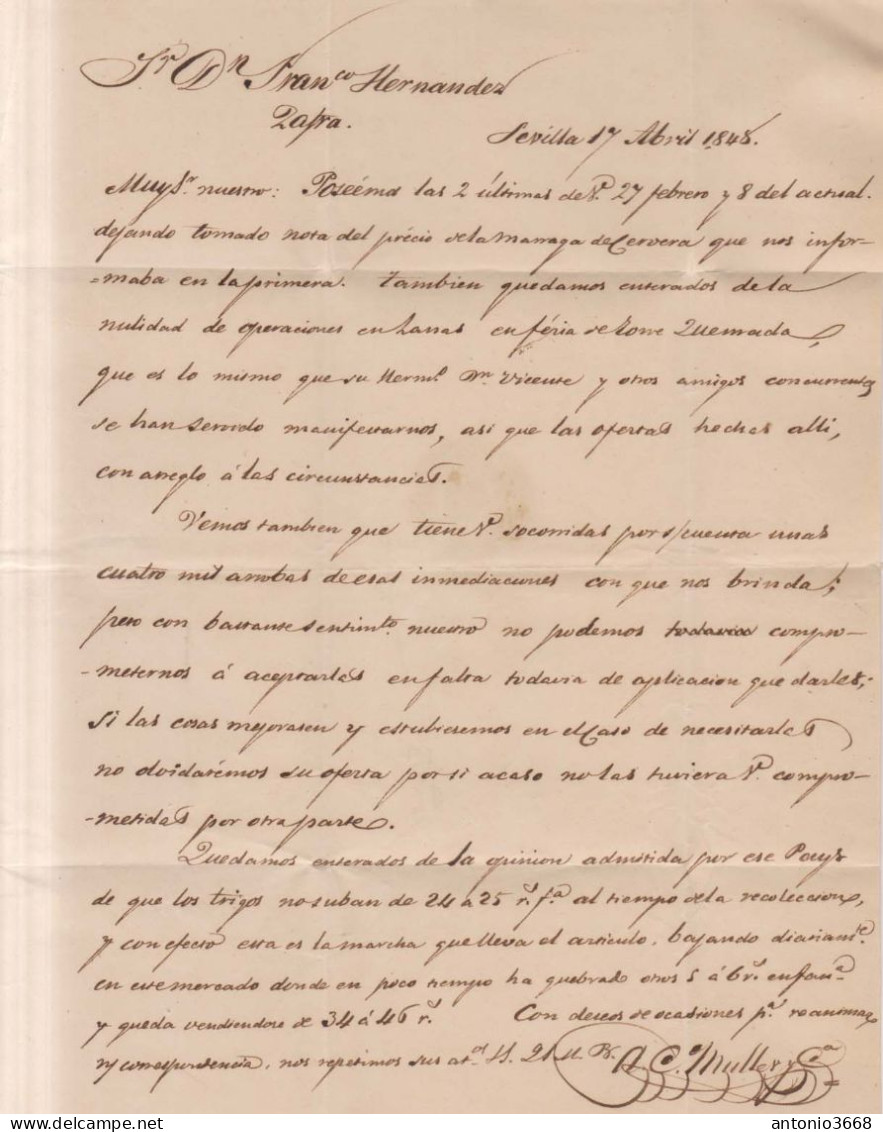 Sr Dn Franco Hernandez
Zafra.
Sevilla 17 Abril 1848.
Muy Sr. nuestro: Poseémos las 2 últimas de V. 27 febrero y 8 del actual.
dejando tomado nota del précio de la marraga de Cervera que nos infor-
=maba en la primera. tambien quedamos enterados de la
nulidad de operaciones en Lanas en féria de Torre Quemada,
que es lo mismo que su Hermo. Dn. Vicente y otros amigos concurrentes
se han servido manifestarnos, asi que las ofertas hechas alli,
con arreglo á las circunstancias.
Vemos tambien que tiene V. socorridas por s/cuenta unas
cuatro mil arrobas de esas inmediaciones con que nos brinda;
pero con bastante sentimto. nuestro no podemos todavia compro-
-meternos á aceptarlas en falta todavia de aplicacion que darles;
Si las cosas mejorasen y estubiesemos en el caso de necesitarlas
no olvidarémos su oferta por si acaso no las tuviera V. compro-
-metidas por otra parte.
Quedamos enterados de la opinion admitida por ese Pays
de que los trigos no suban de 24 a 25 rs. fa. al tiempo de la recoleccion,
y con efecto esta es la marcha que lleva el articulo, bajando diariamte.
en este mercado donde en poco tiempo ha quebrado otros 5 á 6 rs. en fana.
y queda vendiendose de 34 á 46 rs. Con deseos de ocasiones pa. reanimar
ntra correspondencia, nos repetimos sus atos. SS. Q S M B.
C. Muller y Ca
antonio3668